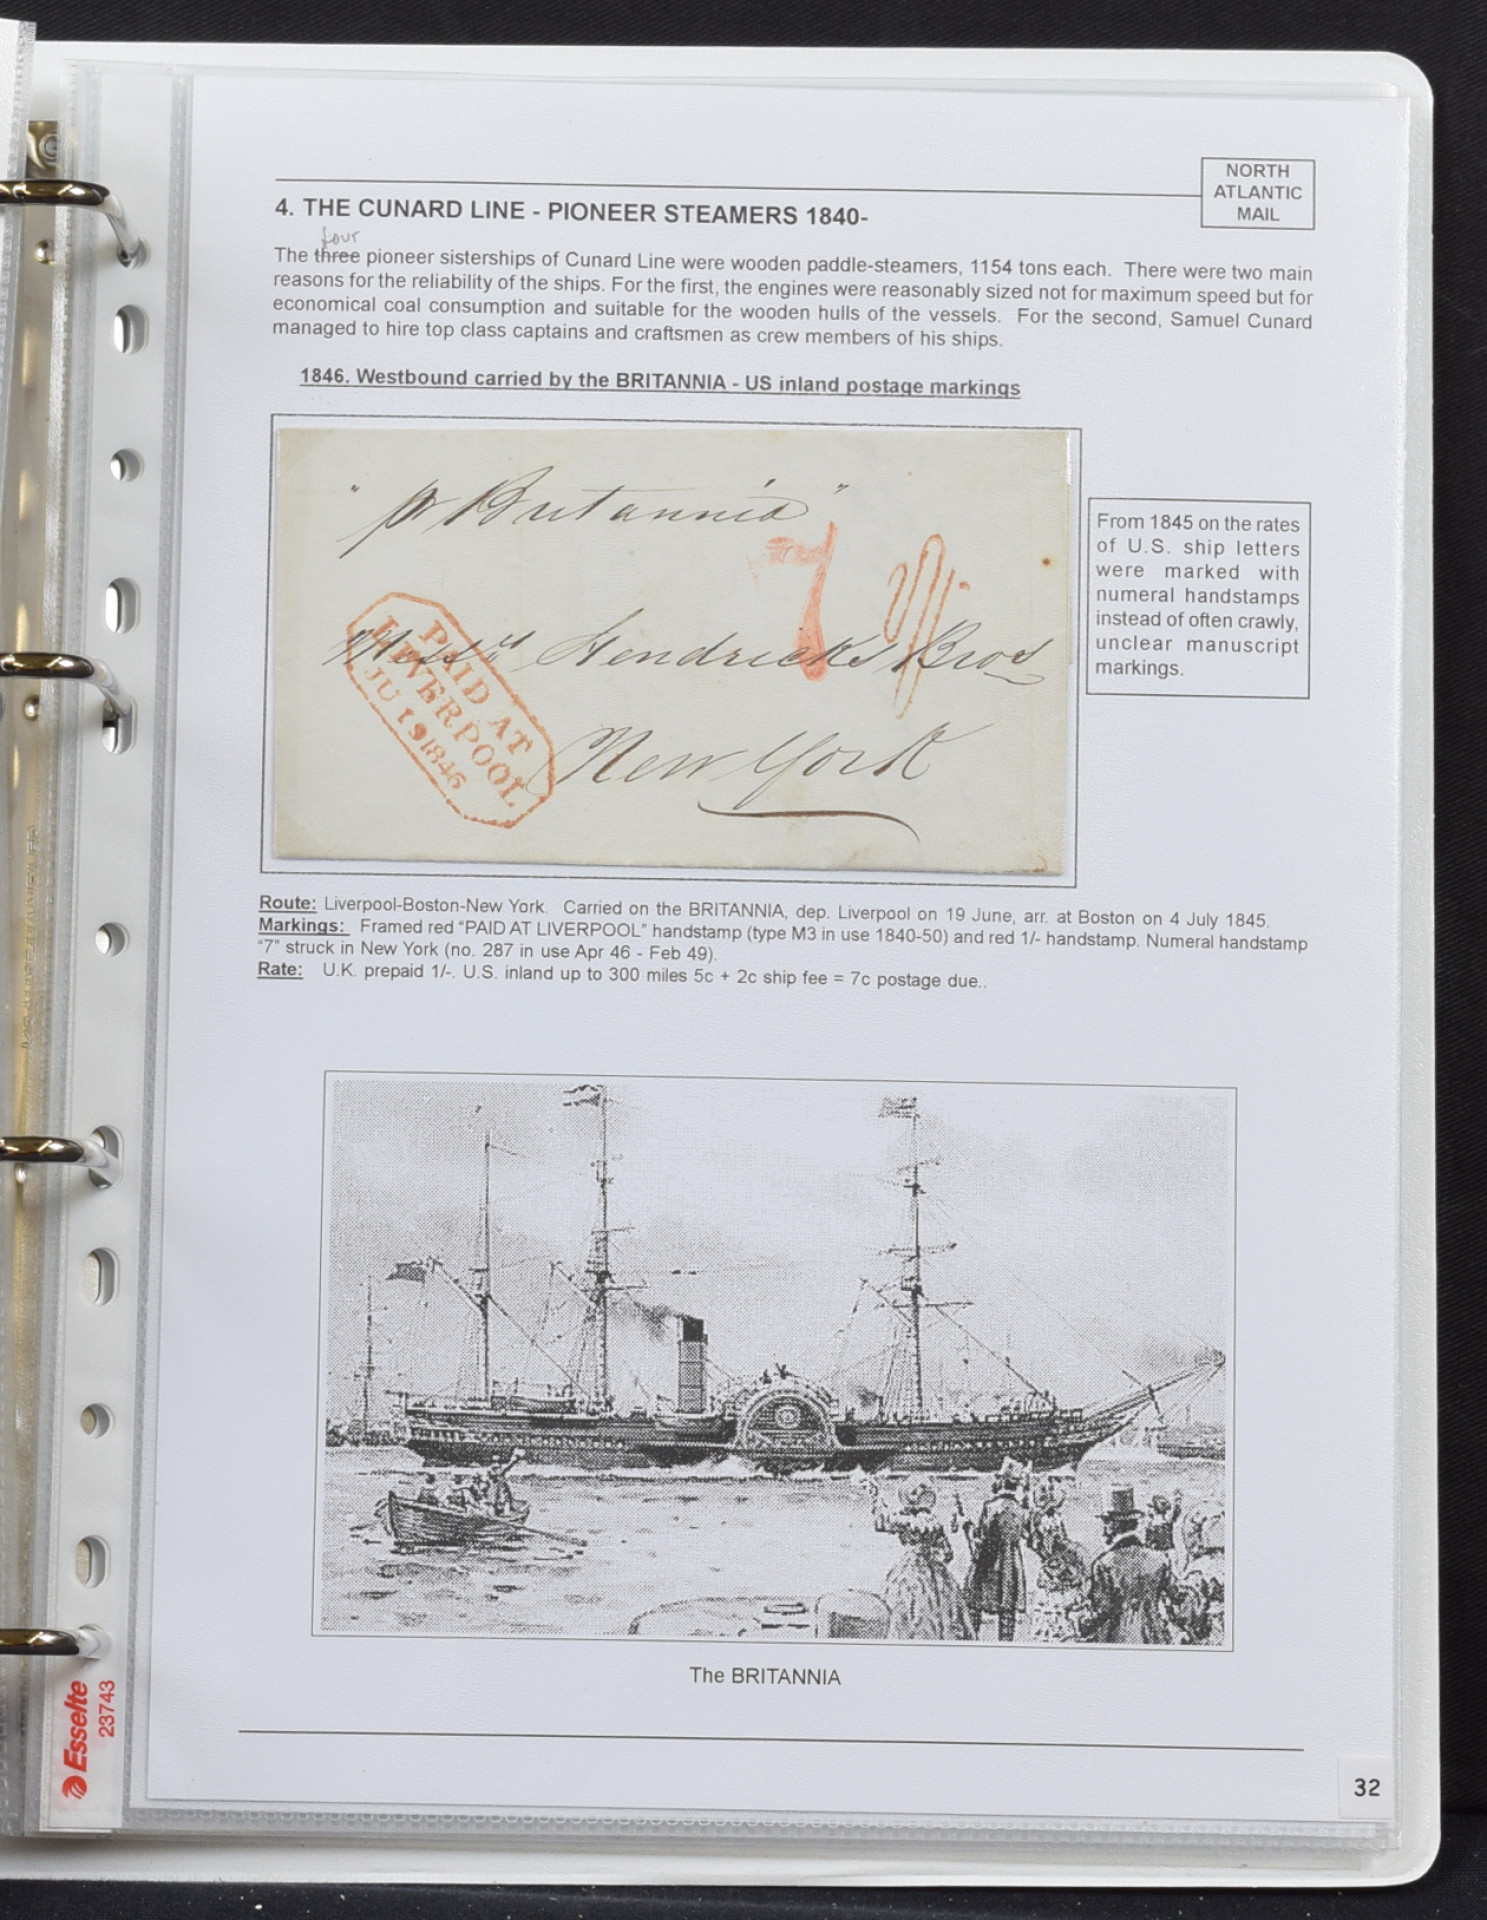 NORTH
ATLANTIC
MAIL
4. THE CUNARD LINE - PIONEER STEAMERS 1840-
four
The three pioneer sisterships of Cunard Line were wooden paddle-steamers, 1154 tons each. There were two main
reasons for the reliability of the ships. For the first, the engines were reasonably sized not for maximum speed but for
economical coal consumption and suitable for the wooden hulls of the vessels. For the second, Samuel Cunard
managed to hire top class captains and craftsmen as crew members of his ships.
1846. Westbound carried by the BRITANNIA - US inland postage markings
"pr Britannia"
7
1/-
Messrs Hendricks Bros
New York
PAID AT
LIVERPOOL
JU 19 1846
From 1845 on the rates
of U.S. ship letters
were marked with
numeral handstamps
instead of often crawly,
unclear manuscript
markings.
Route: Liverpool-Boston-New York. Carried on the BRITANNIA, dep. Liverpool on 19 June, arr. at Boston on 4 July 1845.
Markings: Framed red "PAID AT LIVERPOOL" handstamp (type M3 in use 1840-50) and red 1/- handstamp. Numeral handstamp
"7" struck in New York (no. 287 in use Apr 46 - Feb 49).
Rate: U.K. prepaid 1/-. U.S. inland up to 300 miles 5c + 2c ship fee = 7c postage due..
The BRITANNIA
32
Esselte
23743